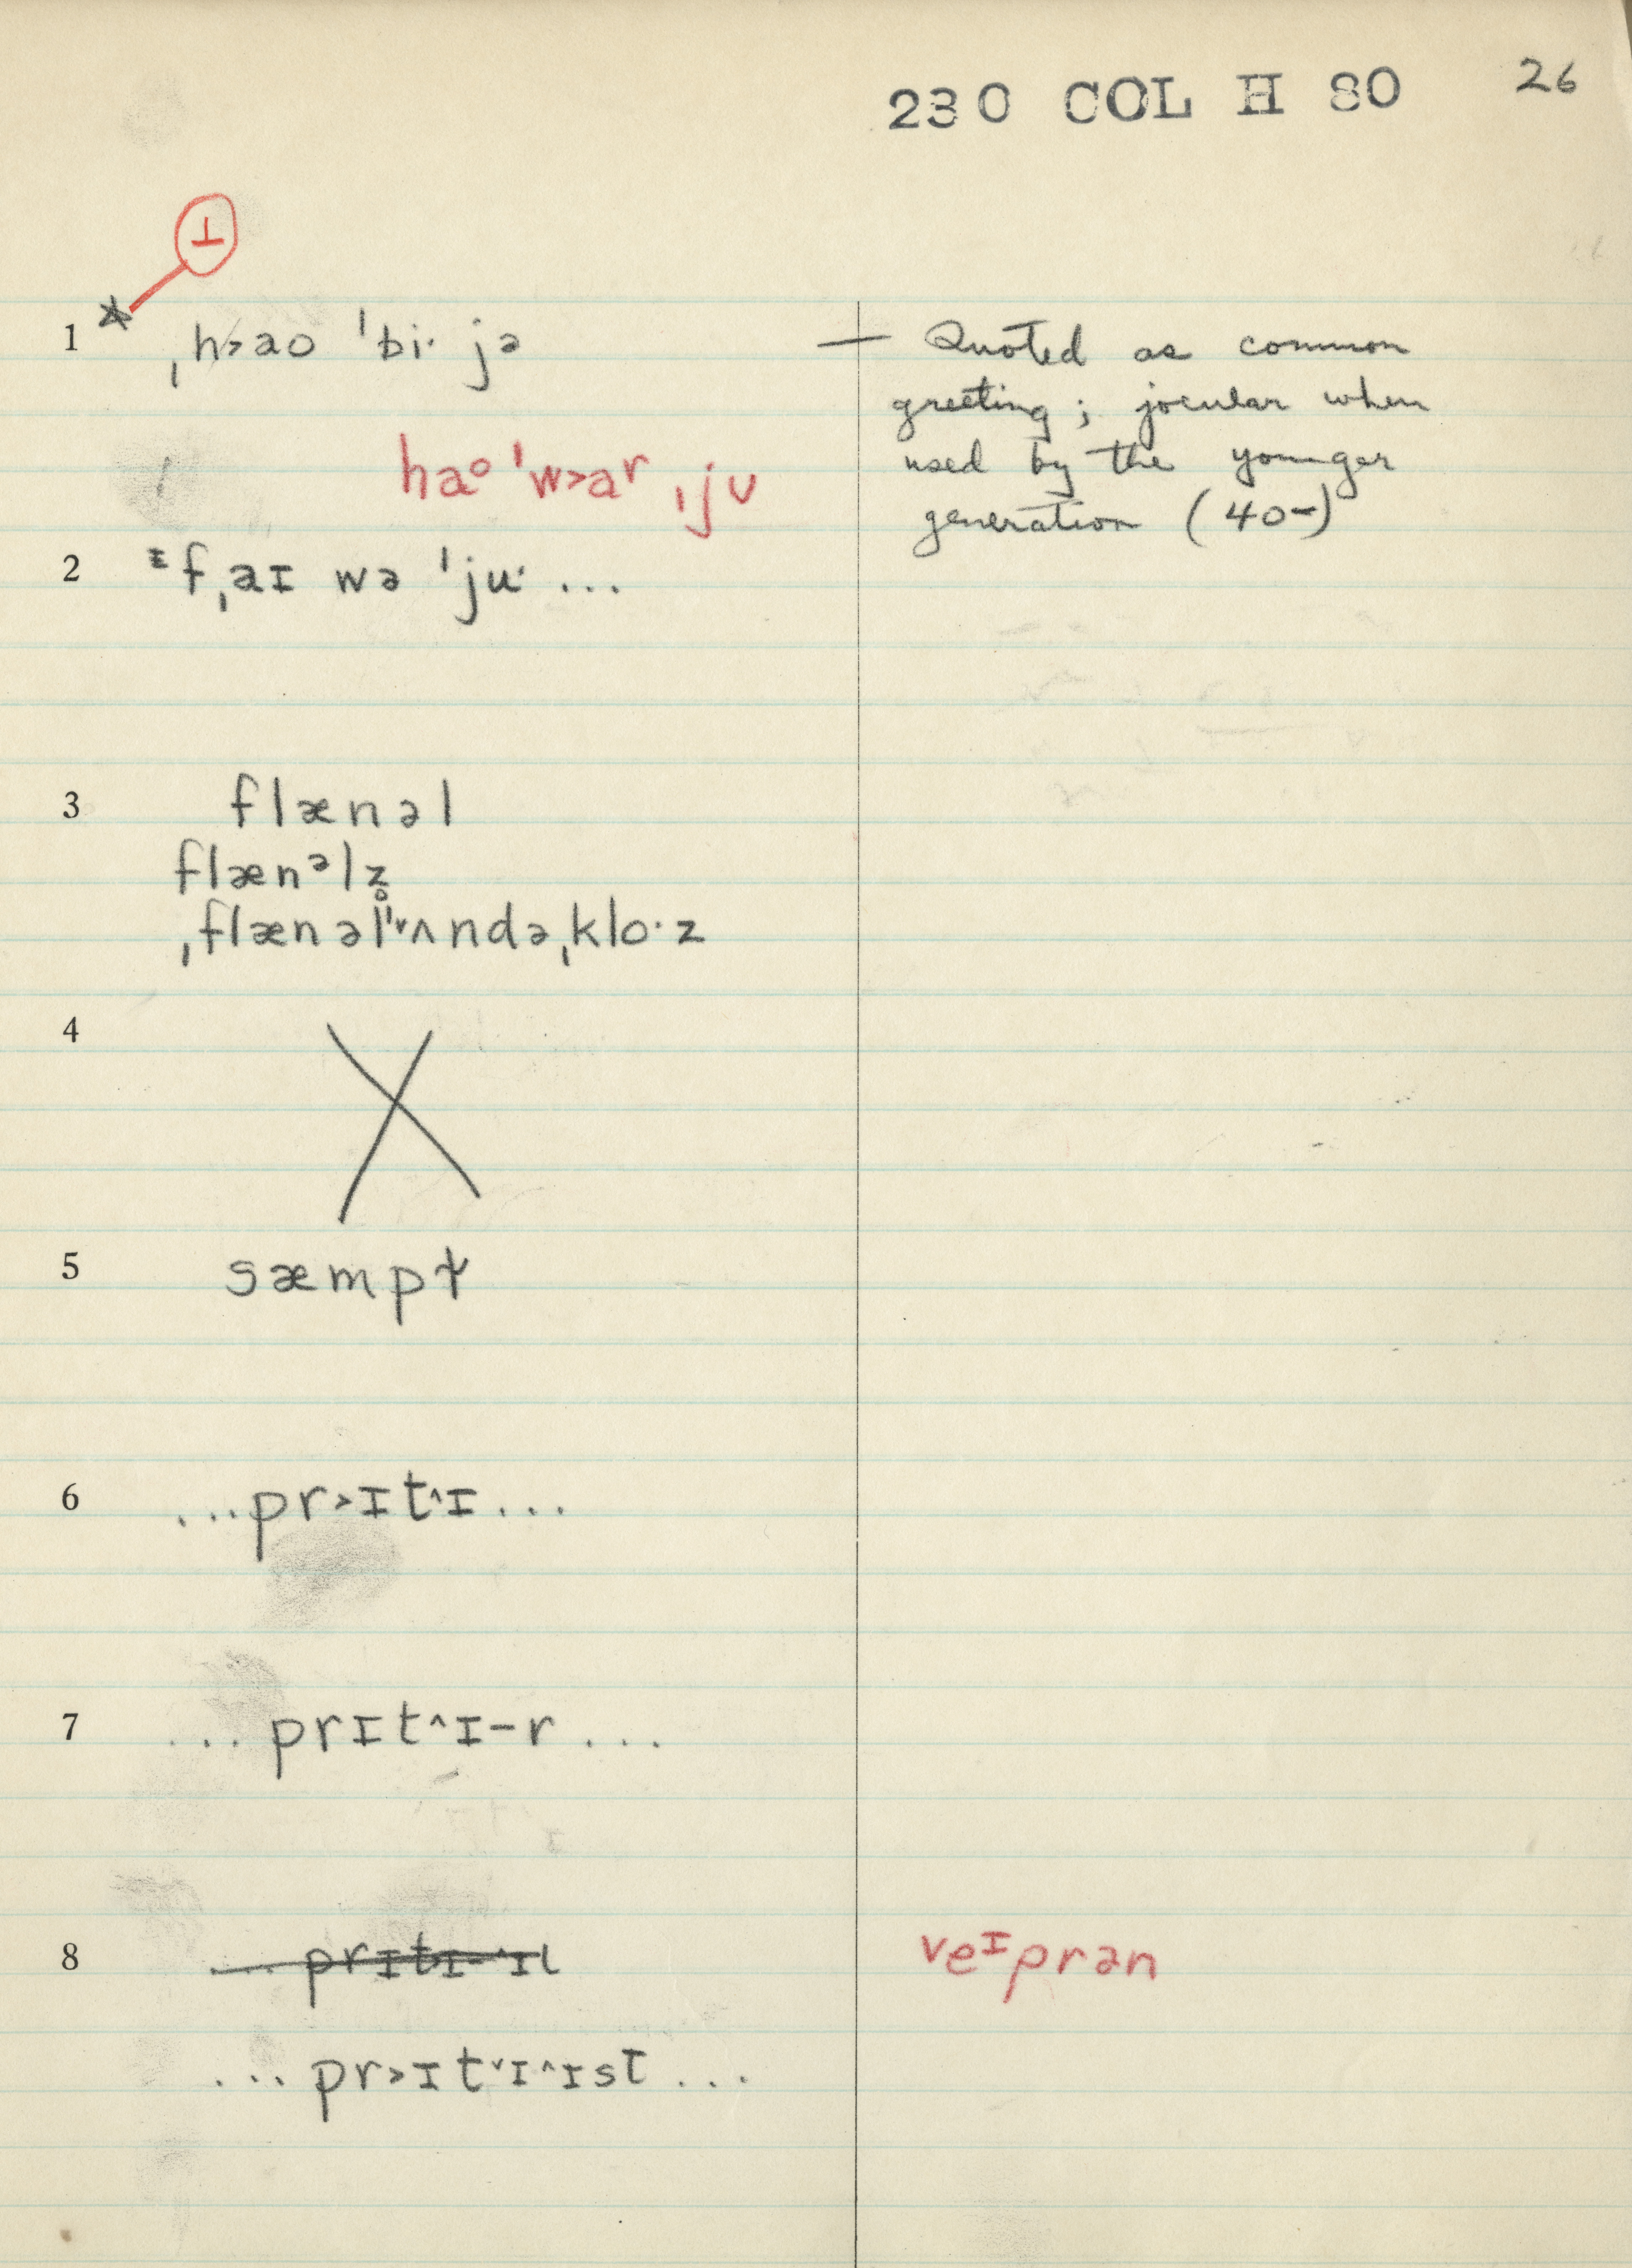 230 COL H 80 26
⊥
1 * ˌh˃aʊ ˈbi· jə — Quoted as common
greeting; jocular when
haᵒ ˈw˃aʳ ˌjʊ used by the younger
generation (40-)
2 ᶦf ˌaɪ wə ˈju· ...
3 flænəl
flænᵊlz̥
ˌflænəlˈ˅ʌndəˌklo·z
4 X
5 sæmpt
6 ...pr˃ɪt^ɪ...
7 ...prɪt^ɪ-r...
8 ... prɪtɪ-^ɪl veᶦprən
... pr˃ɪt˅ɪ^ɪst ...